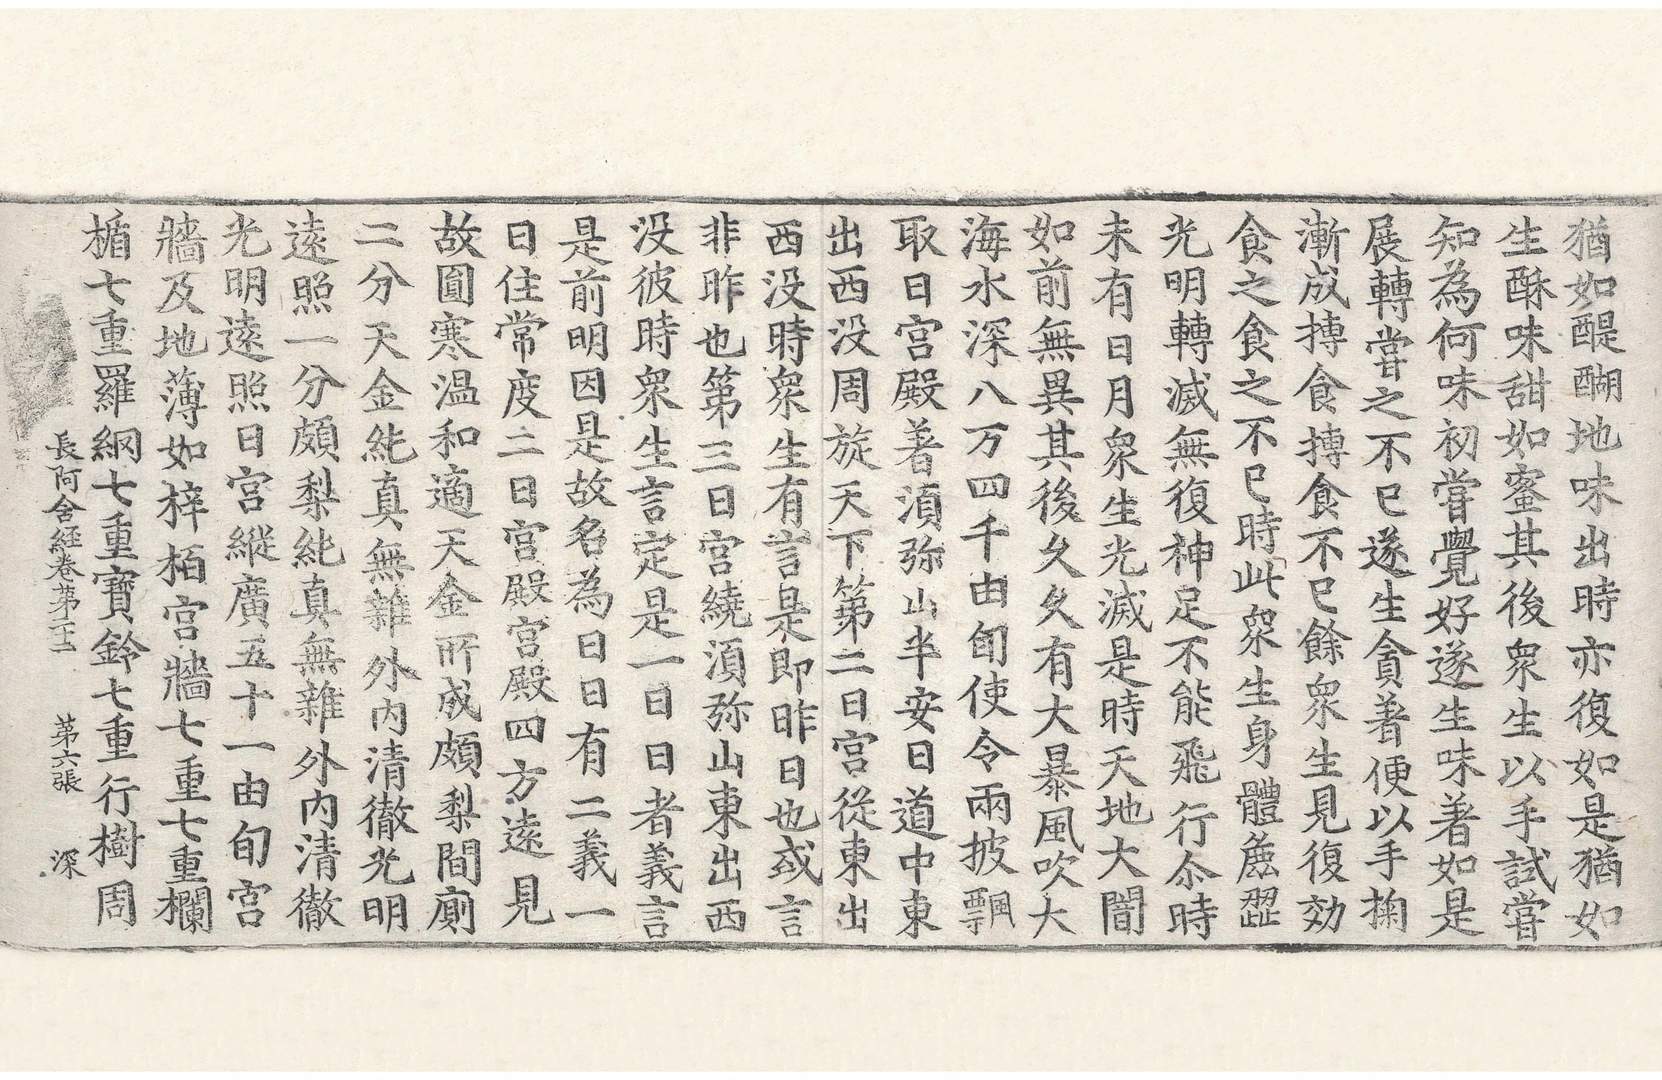 猶如醍醐地味出時亦復如是猶如
生酥味甜如蜜其後衆生以手試嘗
知為何味初嘗覺好遂生味著如是
展轉嘗之不已遂生貪著便以手掬
漸成摶食摶食不已餘衆生見復効
食之食之不已時此衆生身體麁澀
光明轉滅無復神足不能飛行尒時
未有日月衆生光滅是時天地大闇
如前無異其後久久有大暴風吹大
海水深八万四千由旬使令兩披飄
取日宮殿著湏弥山半安日道中東
出西没周旋天下第二日宮從東出
西没時衆生有言是即昨日也或言
非昨也第三日宮繞湏弥山東出西
没彼時衆生言定是一日日者義言
是前明因是故名為日日有二義一
曰住常度二曰宮殿宮殿四方遠見
故圓寒温和適天金所成頗梨間廁
二分天金純真無雜外内清徹光明
遠照一分頗梨純真無雜外内清徹
光明遠照日宮縱廣五十一由旬宮
牆及地薄如梓栢宮牆七重七重欄
楯七重羅網七重寶鈴七重行樹周
長阿含經卷第二十二 第六張 深